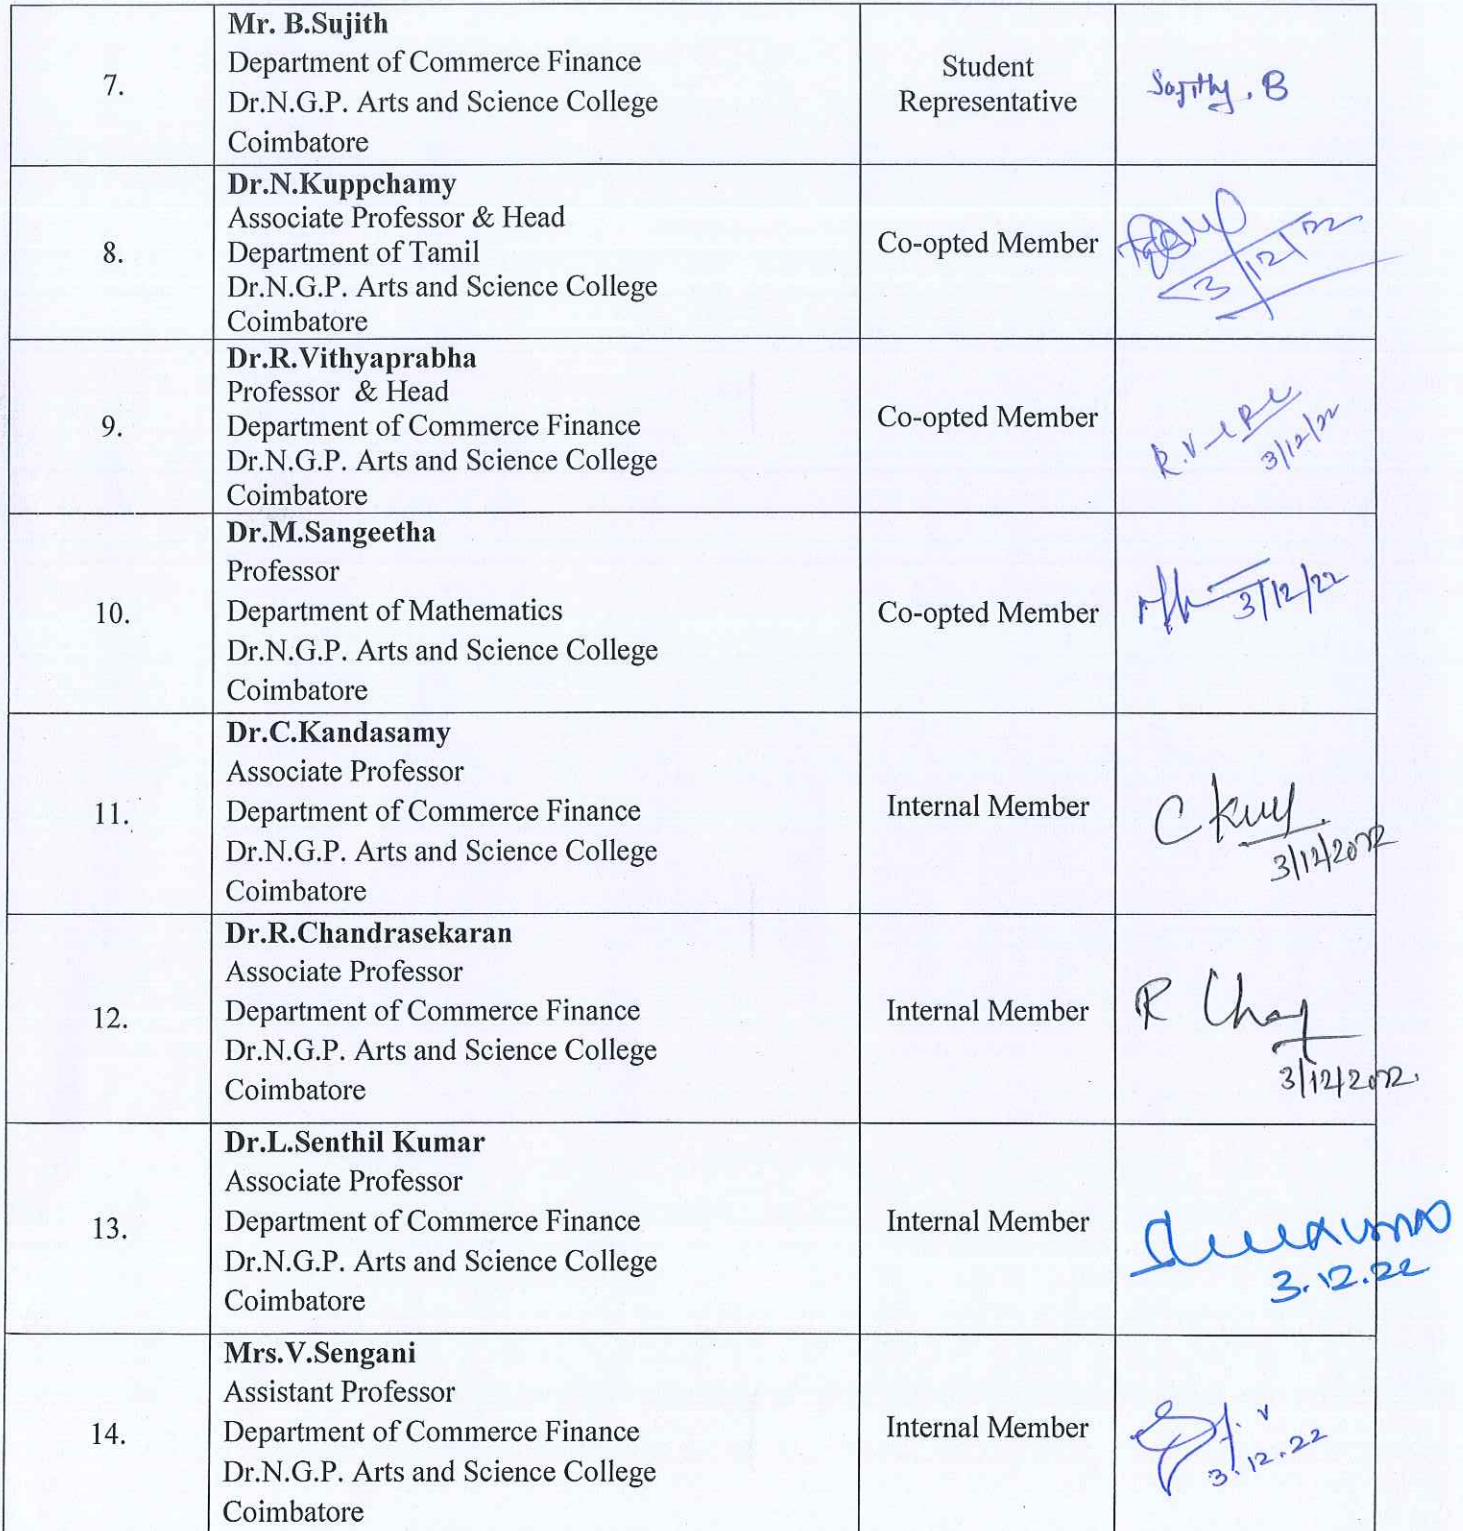 7.
Mr. B.Sujith
Department of Commerce Finance
Dr.N.G.P. Arts and Science College
Coimbatore
Student
Representative
B
8.
Dr.N.Kuppchamy
Associate Professor & Head
Department of Tamil
Dr.N.G.P. Arts and Science College
Coimbatore
Co-opted Member
3/12/22
9.
Dr.R.Vithyaprabha
Professor & Head
Department of Commerce Finance
Dr.N.G.P. Arts and Science College
Coimbatore
Co-opted Member
R.V
3/12/22
10.
Dr.M.Sangeetha
Professor
Department of Mathematics
Dr.N.G.P. Arts and Science College
Coimbatore
Co-opted Member
3/12/22
11.
Dr.C.Kandasamy
Associate Professor
Department of Commerce Finance
Dr.N.G.P. Arts and Science College
Coimbatore
Internal Member
3/12/2022
12.
Dr.R.Chandrasekaran
Associate Professor
Department of Commerce Finance
Dr.N.G.P. Arts and Science College
Coimbatore
Internal Member
3/12/2022.
13.
Dr.L.Senthil Kumar
Associate Professor
Department of Commerce Finance
Dr.N.G.P. Arts and Science College
Coimbatore
Internal Member
3.12.22
14.
Mrs.V.Sengani
Assistant Professor
Department of Commerce Finance
Dr.N.G.P. Arts and Science College
Coimbatore
Internal Member
3.12.22